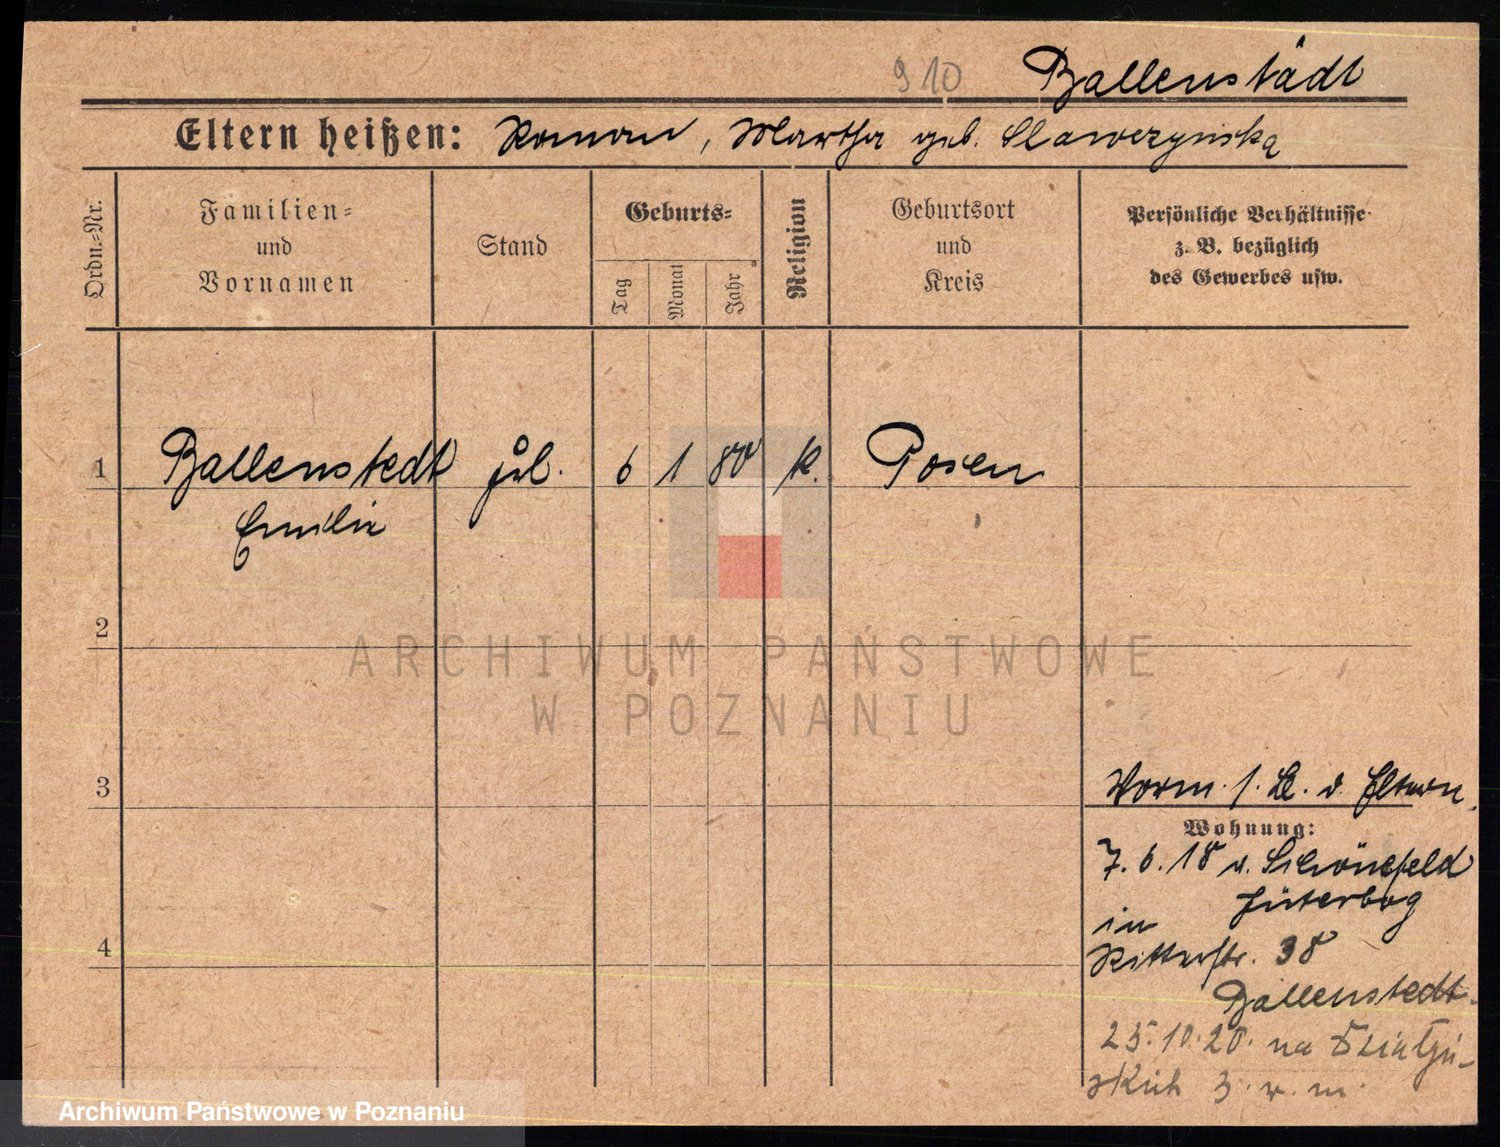 910 Ballenstädt
Eltern heißen: Roman, Martha geb. Slawczynska
Ordn.-Nr.
Familien-
und
Vornamen
Stand
Geburts-
Tag
Monat
Jahr
Religion
Geburtsort
und
Kreis
Persönliche Verhältnisse
z. B. bezüglich
des Gewerbes usw.
1 Ballenstedt Frl. 6 1 80 k. Posen
Emilie
2
3
Vorm. s. Bl. d. Eltern.
Wohnung:
7.6.18 v. Schönefeld
Jüterbog
in
Ritterstr. 38
4
Ballenstedt
25.10.20. na
3. w. m.
ARCHIWUM PAŃSTWOWE
W POZNANIU
Archiwum Państwowe w Poznaniu